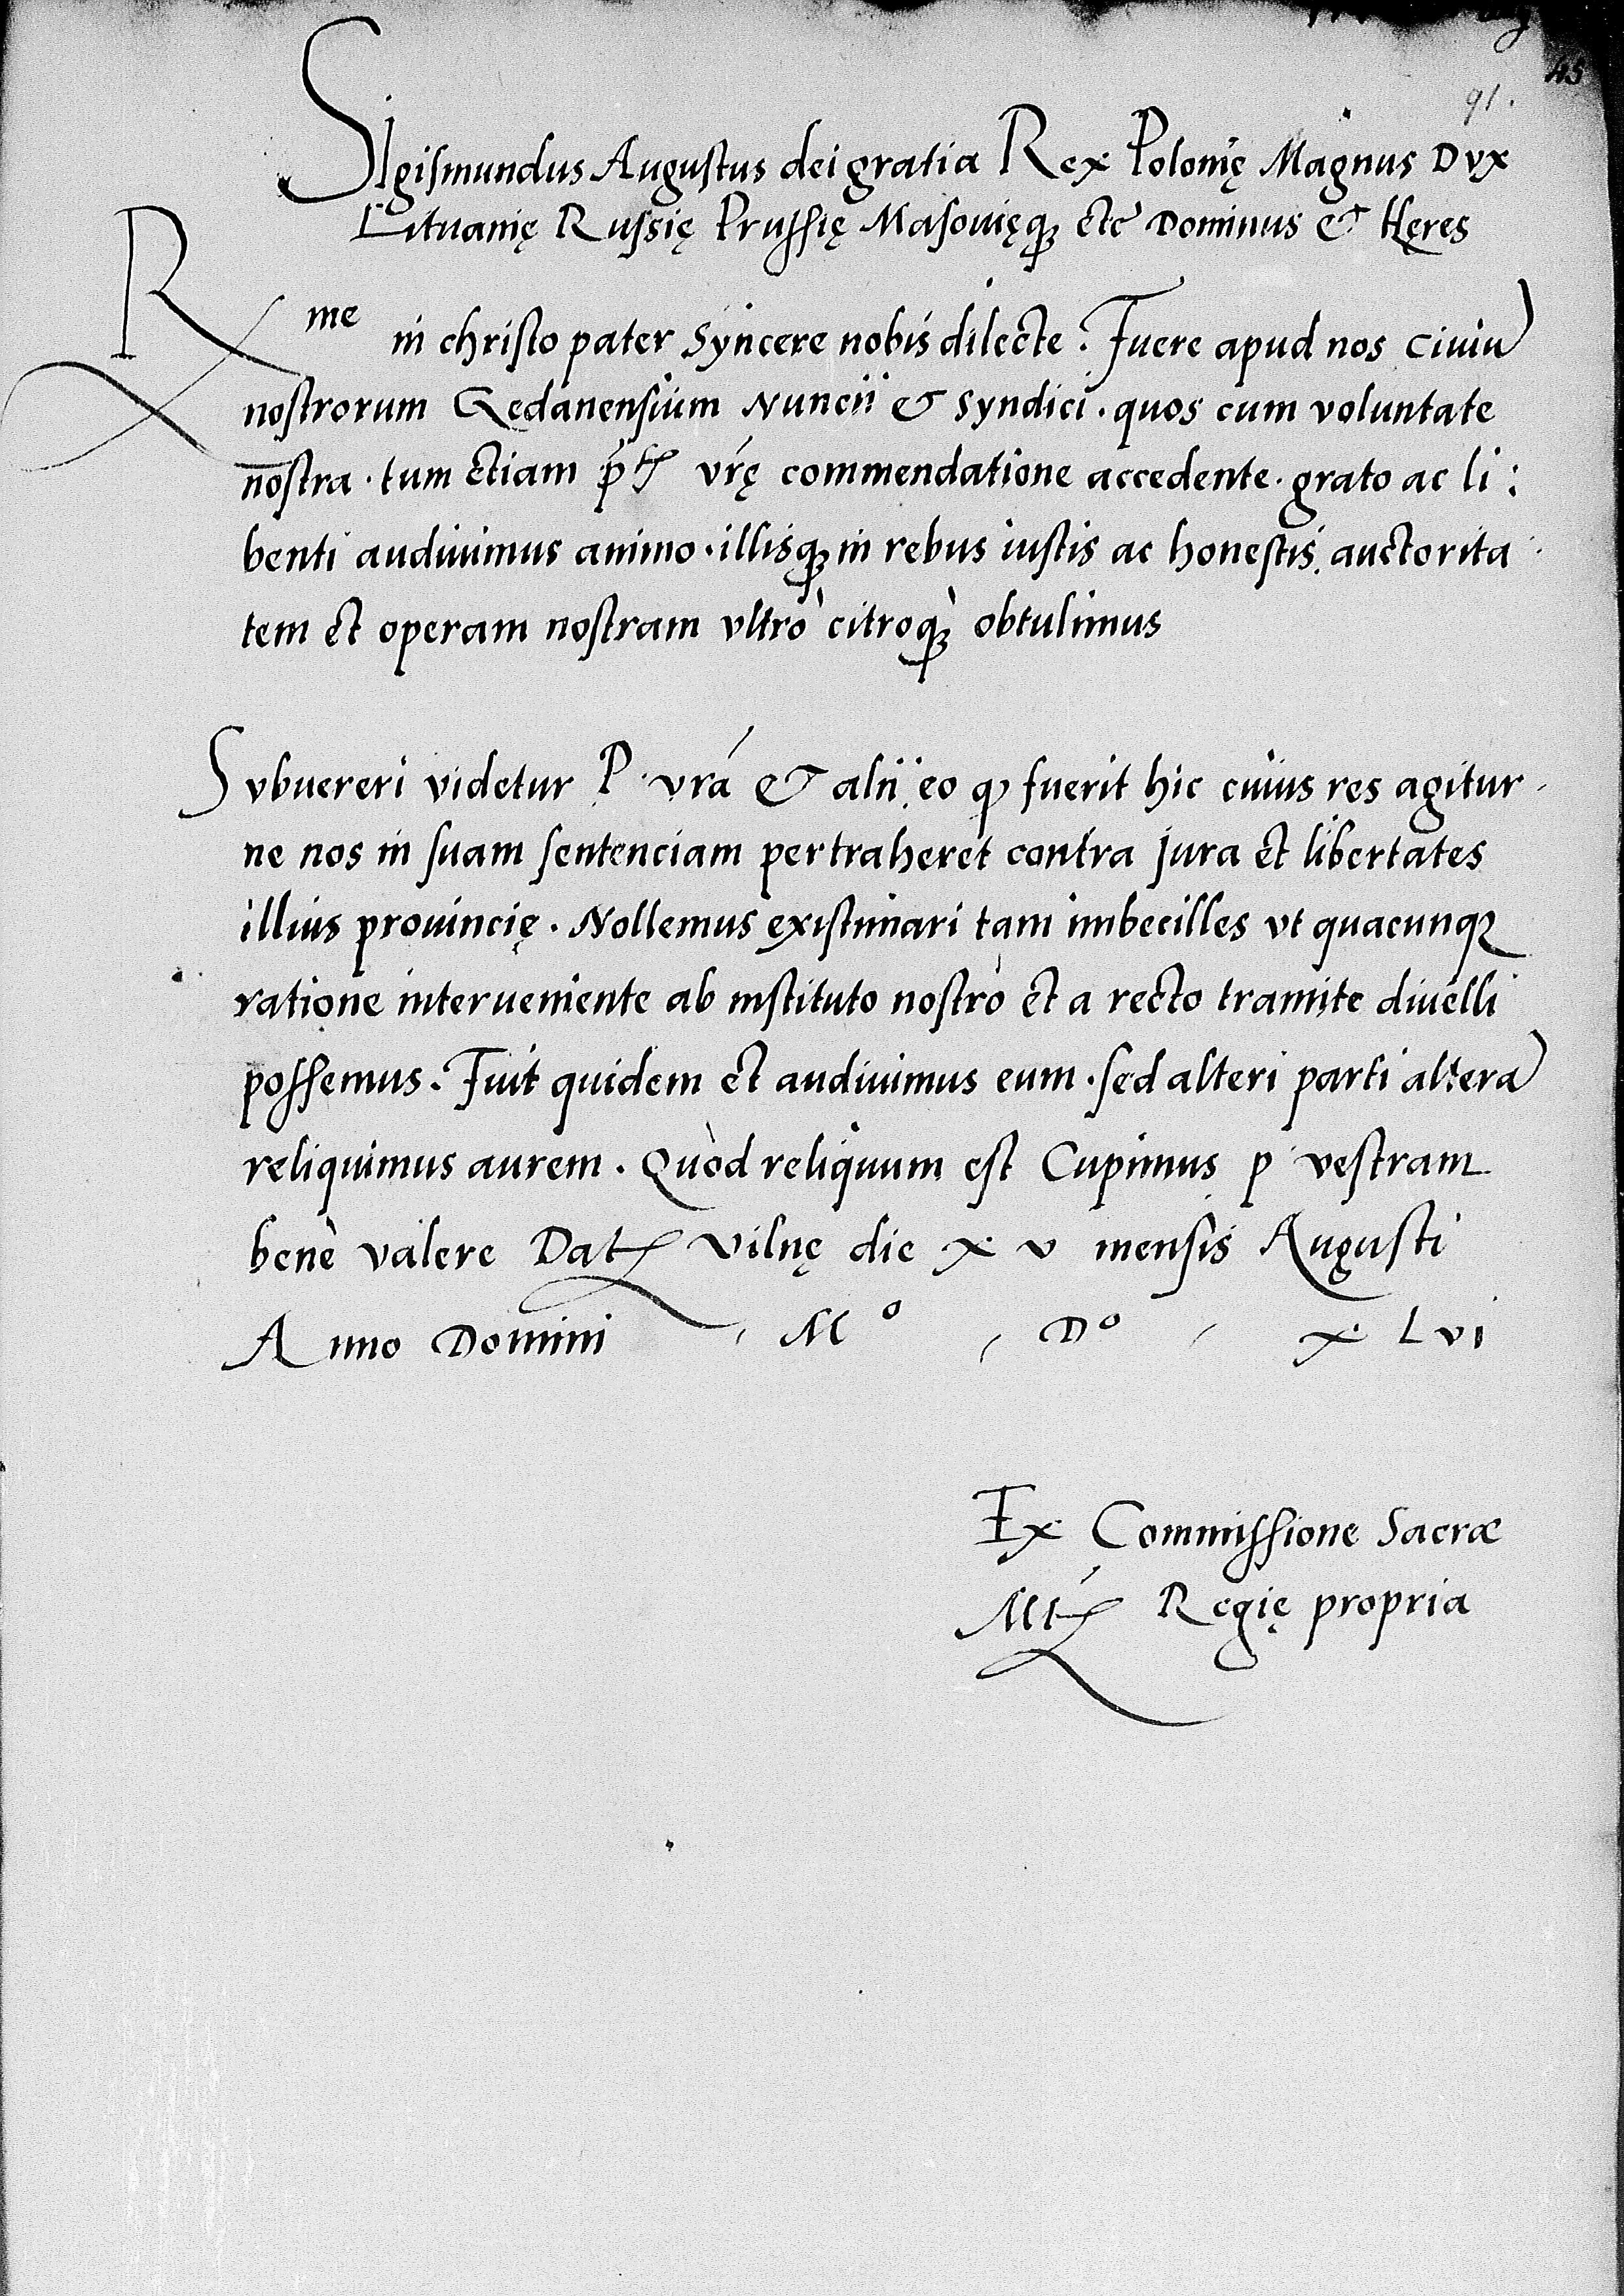 45
91.
SIgismundus Augustus dei gratia Rex Polonię Magnus Dvx
Litvanię Russię Prussię Masovięq₃ etc̄ Dominus & Hęres
R me in christo pater Syncere nobis dilecte. Fuere apud nos Ciuiū
nostrorum Gedanensium Nuncii & Syndici. quos cum voluntate
nostra. tum etiam p̄tis vr̄ę commendatione accedente. grato ac li:
benti audiuimus animo. illisq₃ in rebus iustis ac honestis. auctorita
tem et operam nostram vltrò citroq₃̀ obtulimus
Svbuereri videtur P. vrā & alii eo qɔ fuerit hic cuius res agitur.
ne nos in suam sentenciam pertraheret contra Jura et libertates
illius prouincię. Nollemus existimari tam imbecilles vt quacunq₃
ratione interueniente ab instituto nostrò et a recto tramite diuelli
possemus. Fuit quidem et audiuimus eum. sed alteri parti alterā
reliquimus aurem. Quòd reliquum est Cupimus p vestram
benè valere Datʒ Vilnę die x v mensis Augusti
Anno Domini , Mo , Do , x Lvi
Ex Commissione Sacræ
Mtʒ Regię propria